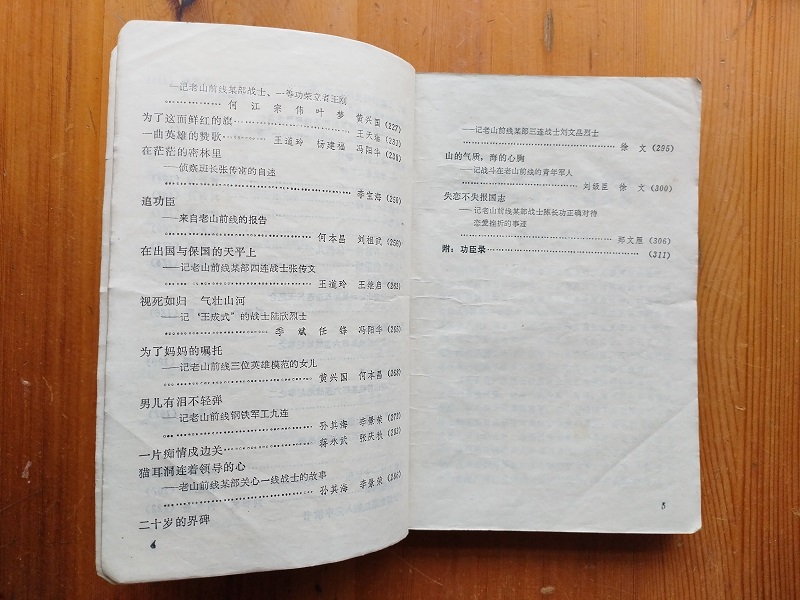 ——记老山前线某部战士、一等功荣立者王刚
………………何 江 宗 伟 叶 梦 黄兴国(227)
为了这面鲜红的旗………………王天瑞(233)
一曲英雄的赞歌…………王道玲 杨建福 冯阳华(238)
在茫茫的密林里
——侦察班长张传富的自述
………………李宝海(250)
追功臣
——来自老山前线的报告
………………何本昌 刘祖武(256)
在出国与保国的天平上
——记老山前线某部四连战士张传文
………………王道玲 王继启(263)
视死如归 气壮山河
——记“王成式”的战士陆欣烈士
………………李 斌 任 锋 冯阳华(265)
为了妈妈的嘱托
——记老山前线三位英雄模范的女儿
………………黄兴国 何本昌(268)
男儿有泪不轻弹
——记老山前线钢铁军工九连
………………孙其海 李景荣(272)
一片痴情戍边关…………蒋永武 张庆松(283)
猫耳洞连着领导的心
——老山前线某部关心一线战士的故事
………………孙其海 李景荣(286)
二十岁的界碑
4
——记老山前线某部三连战士刘文品烈士
………………徐 文(295)
山的气质,海的心胸
——记战斗在老山前线的青年军人
………………刘级臣 徐 文(300)
失恋不失报国志
——记老山前线某部战士陈长功正确对待
恋爱挫折的事迹
………………郑文雁(306)
附:功臣录………………(311)
5